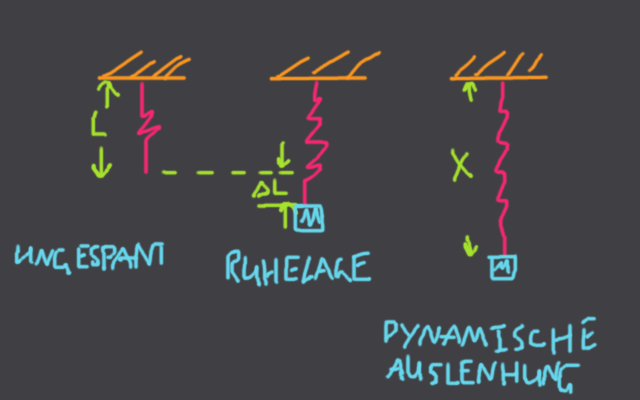 L
ΔL
M
X
M
UNGESPANT
RUHELAGE
DYNAMISCHE
AUSLENHUNG